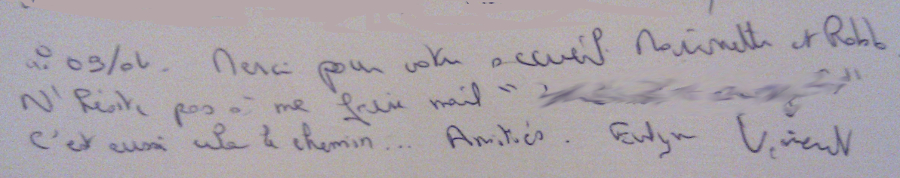 09/04. Merci pour votre accueil Marinette et Robb
N'hésite pas à me faire mail "
C'est aussi cela le chemin... Amitiés. Evelyn Vincent